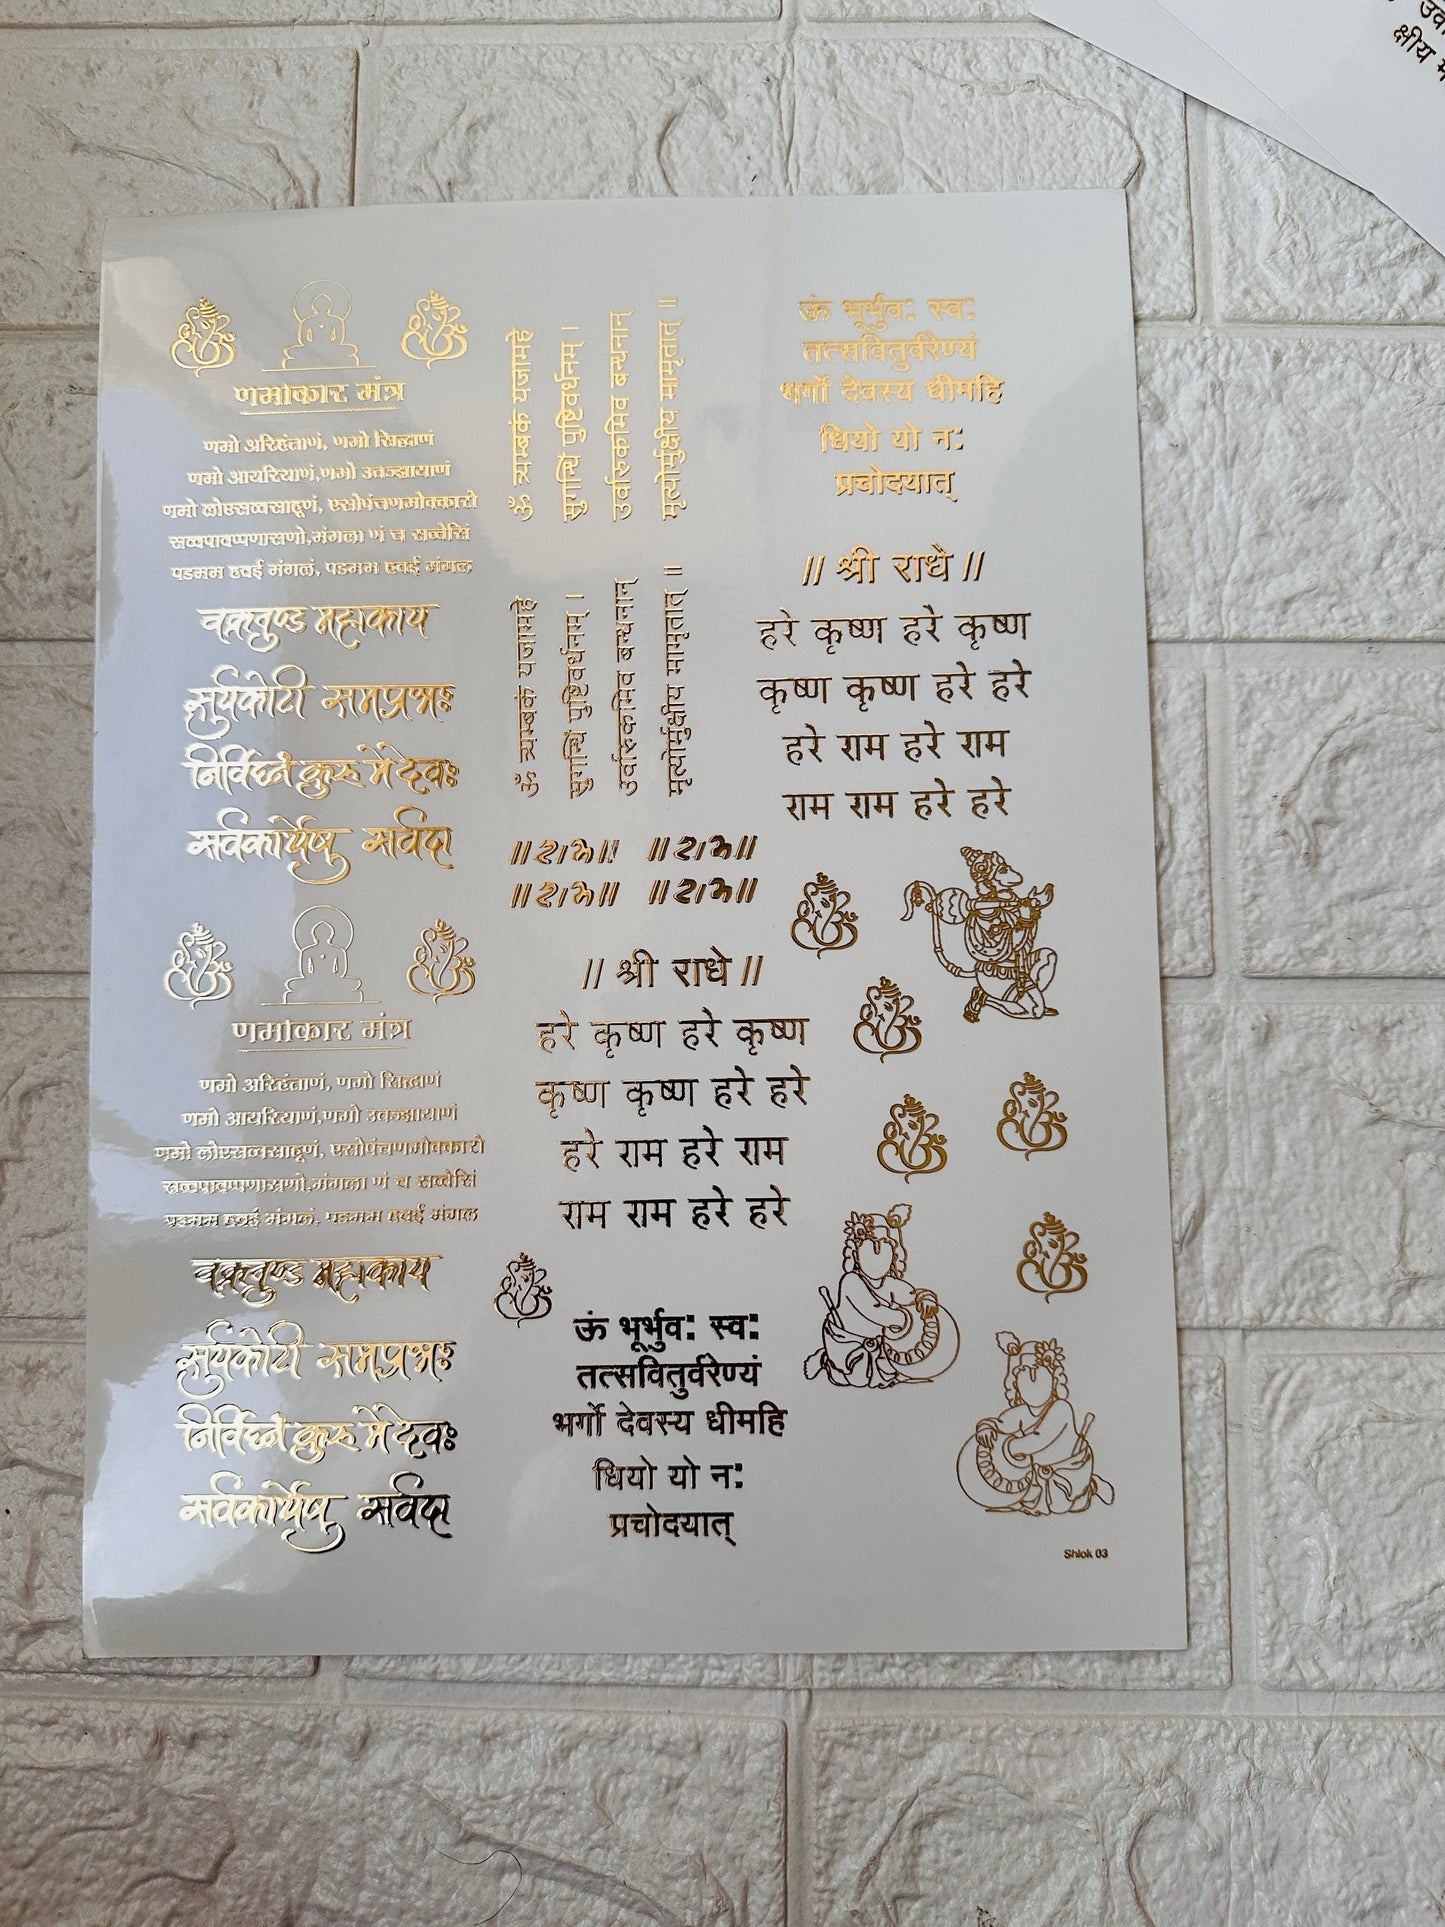 णमोकार मंत्र
णमो अरिहंताणं, णमो सिद्धाणं
णमो आयरियाणं,णमो उवज्झायाणं
णमो लोएसव्वसाहूणं, एसोपंचणमोक्कारो
सव्वपावप्पणासणो,मंगला णं च सव्वेसिं
पडमम हवई मंगलं, पडमम हवई मंगल
वक्रतुण्ड महाकाय
सुर्यकोटी समप्रभः
निर्विघ्नं कुरु मे देवः
सर्वकार्येषु सर्वदा
ॐ त्र्यम्बकं यजामहे
सुगन्धिं पुष्टिवर्धनम् ।
उर्वारुकमिव बन्धनान्
मृत्योर्मुक्षीय मामृतात् ॥
ॐ त्र्यम्बकं यजामहे
सुगन्धिं पुष्टिवर्धनम् ।
उर्वारुकमिव बन्धनान्
मृत्योर्मुक्षीय मामृतात् ॥
॥राम॥ ॥राम॥
॥राम॥ ॥राम॥
ऊं भूर्भुव: स्व:
तत्सवितुर्वरेण्यं
भर्गो देवस्य धीमहि
धियो यो न:
प्रचोदयात्
// श्री राधे //
हरे कृष्ण हरे कृष्ण
कृष्ण कृष्ण हरे हरे
हरे राम हरे राम
राम राम हरे हरे
णमोकार मंत्र
णमो अरिहंताणं, णमो सिद्धाणं
णमो आयरियाणं,णमो उवज्झायाणं
णमो लोएसव्वसाहूणं, एसोपंचणमोक्कारो
सव्वपावप्पणासणो,मंगला णं च सव्वेसिं
पडमम हवई मंगलं, पडमम हवई मंगल
वक्रतुण्ड महाकाय
सुर्यकोटी समप्रभः
निर्विघ्नं कुरु मे देवः
सर्वकार्येषु सर्वदा
// श्री राधे //
हरे कृष्ण हरे कृष्ण
कृष्ण कृष्ण हरे हरे
हरे राम हरे राम
राम राम हरे हरे
ऊं भूर्भुव: स्व:
तत्सवितुर्वरेण्यं
भर्गो देवस्य धीमहि
धियो यो न:
प्रचोदयात्
Shlok 03